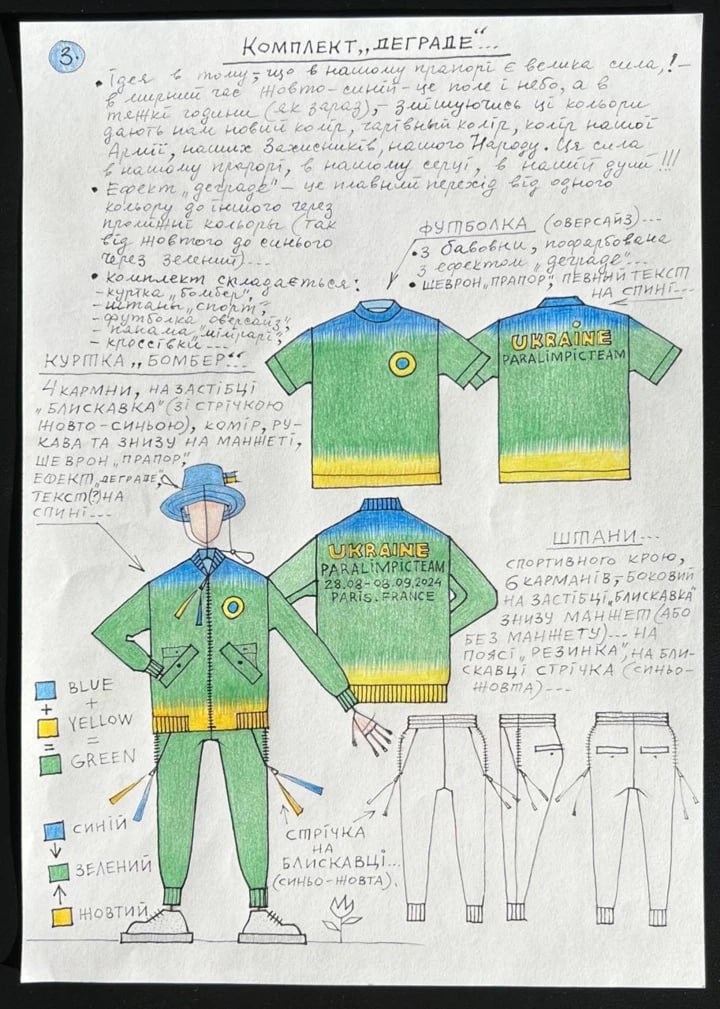 3.
КОМПЛЕКТ „ДЕГРАДЕ"...
• Ідея в тому, - що в нашому прапорі є велика сила,! -
в мирний час жовто-синій - це поле і небо, а в
тяжкі години (як зараз), - змішуючись ці кольори
дають нам новий колір, чарівний колір, колір нашої
Армії, наших Захисників, нашого Народу. Це сила
в нашому прапорі, в нашому серці, в нашій душі!!!
• Ефект „деграде" - це плавний перехід від одного
кольору до іншого через
проміжні кольоры (так
від жовтого до синього
через зелений)...
• комплект складається:
- куртка „бомбер",
- штаны „спорт",
- футболка „оверсайз",
- панама „мілітарі",
- кроссівки...
ФУТБОЛКА (ОВЕРСАЙЗ)...
• З БАВОВНИ, ПОФАРБОВАНА
З ЕФЕКТОМ „ДЕГРАДЕ"...
• ШЕВРОН „ПРАПОР", ПЕВНИЙ ТЕКСТ
НА СПИНІ...
UKRAINE
PARALIMPICTEAM
КУРТКА „БОМБЕР"...
4 КАРМНИ, НА ЗАСТІБЦІ
„БЛИСКАВКА" (ЗІ СТРІЧКОЮ
ЖОВТО-СИНЬОЮ), КОМІР, РУ-
КАВА ТА ЗНИЗУ НА МАНЖЕТІ,
ШЕВРОН „ПРАПОР",
ЕФЕКТ „ДЕГРАДЕ",
ТЕКСТ(?) НА
СПИНІ...
UKRAINE
PARALIMPICTEAM
28.08-08.09.2024
PARIS. FRANCE
ШТАНИ...
СПОРТИВНОГО КРОЮ,
6 КАРМАНІВ, - БОКОВИЙ
НА ЗАСТІБЦІ „БЛИСКАВКА"
ЗНИЗУ МАНЖЕТ (АБО
БЕЗ МАНЖЕТУ)... НА
ПОЯСІ „РЕЗИНКА", НА БЛИ-
СКАВЦІ СТРІЧКА (СИНЬО-
ЖОВТА)...
BLUE
+
+
YELLOW
=
=
GREEN
СИНІЙ
ЗЕЛЕНИЙ
ЖОВТИЙ
СТРІЧКА
НА
БЛИСКАВЦІ...
(СИНЬО-ЖОВТА).